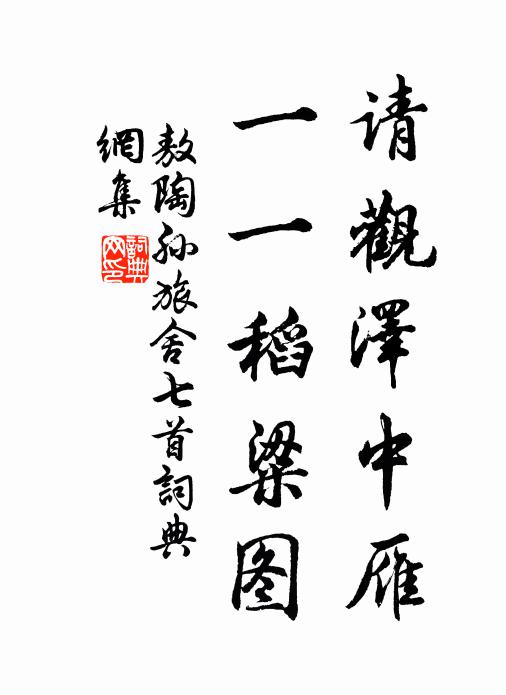 请觀澤中雁
一一稻粱图
敖陶孙旅舍七首詞典
網集
詞典
网印